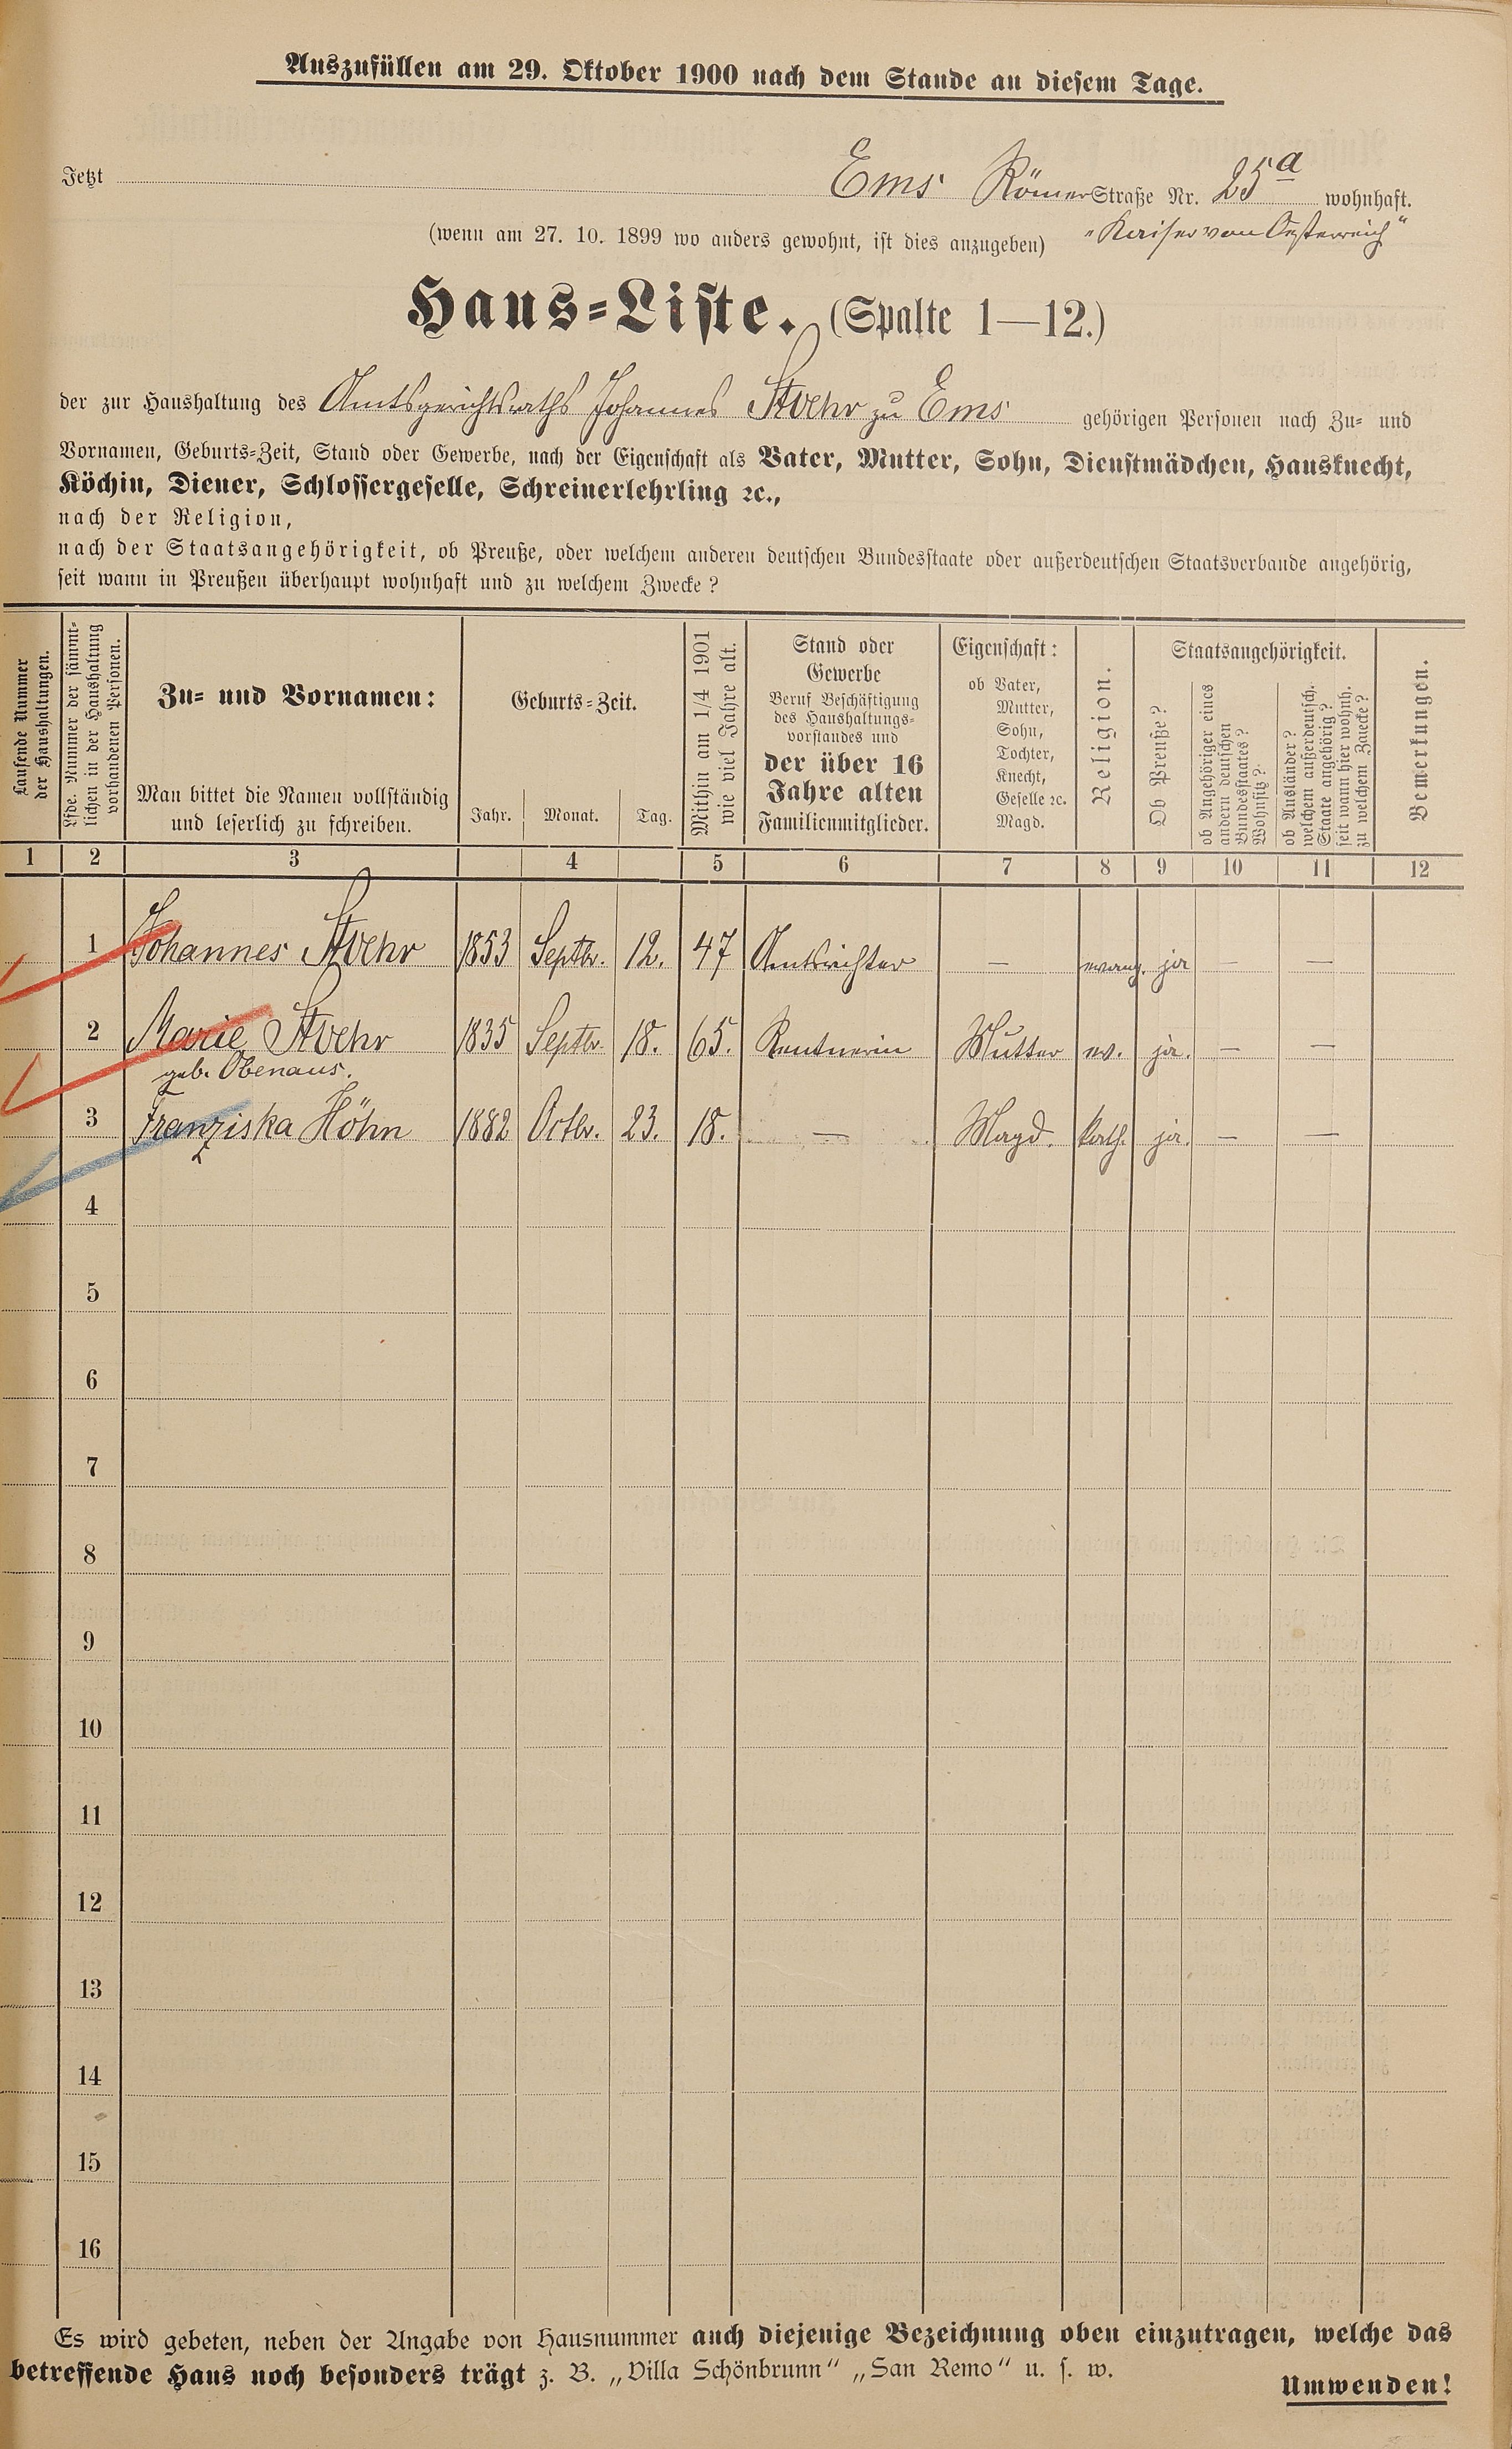 Auszufüllen am 29. Oktober 1900 nach dem Stande an diesem Tage.
Jetzt Ems Römer Straße Nr. 25a wohnhaft.
(wenn am 27. 10. 1899 wo anders gewohnt, ist dies anzugeben) „Kaiser von Oesterreich“
Haus-Liste. (Spalte 1—12.)
der zur Haushaltung des Amtsgerichtsraths Johannes Stoehr zu Ems gehörigen Personen nach Zu- und
Vornamen, Geburts-Zeit, Stand oder Gewerbe, nach der Eigenschaft als Vater, Mutter, Sohn, Dienstmädchen, Hausknecht,
Köchin, Diener, Schlossergeselle, Schreinerlehrling ꝛc.,
nach der Religion,
nach der Staatsangehörigkeit, ob Preuße, oder welchem anderen deutschen Bundesstaate oder außerdeutschen Staatsverbande angehörig,
seit wann in Preußen überhaupt wohnhaft und zu welchem Zwecke?
Laufende Nummer
der Haushaltungen.
Lfde. Nummer der sämmt-
lichen in der Haushaltung
vorhandenen Personen.
Zu- und Vornamen:
Man bittet die Namen vollständig
und leserlich zu schreiben.
Geburts-Zeit.
Jahr. Monat. Tag.
Mithin am 1/4 1901
wie viel Jahre alt.
Stand oder
Gewerbe
Beruf Beschäftigung
des Haushaltungs-
vorstandes und
der über 16
Jahre alten
Familienmitglieder.
Eigenschaft:
ob Vater,
Mutter,
Sohn,
Tochter,
Knecht,
Geselle ꝛc.
Magd.
Religion.
Staatsangehörigkeit.
Ob Preuße?
ob Angehöriger eines
andern deutschen
Bundesstaates?
Wohnsitz?
ob Ausländer?
welchem außerdeutsch.
Staate angehörig?
seit wann hier wohnh.
zu welchem Zwecke?
Bemerkungen.
1 2 3 4 5 6 7 8 9 10 11 12
1 Johannes Stoehr 1853 Septbr. 12. 47 Amtsrichter — evang. ja — —
2 Marie Stoehr 1835 Septbr. 18. 65. Rentnerin Mutter ev. ja. — —
geb. Obenaus.
3 Franziska Höhn 1882 Octbr. 23. 18. — Magd. kath. ja. — —
4
5
6
7
8
9
10
11
12
13
14
15
16
Es wird gebeten, neben der Angabe von Hausnummer auch diejenige Bezeichnung oben einzutragen, welche das
betreffende Haus noch besonders trägt z. B. „Villa Schönbrunn“ „San Remo“ u. s. w.
Umwenden!